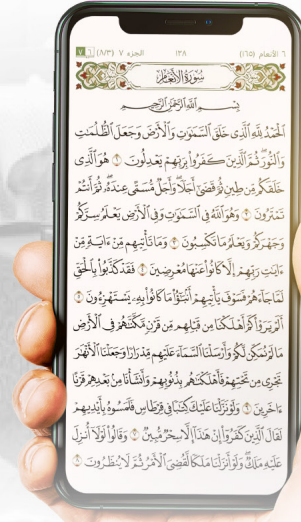 ٦ الأنعام (١٦٥) ١٢٨ الجزء ٧ (٨/٣) ٦ ٧
سُورَةُ الأَنْعَامِ
بِسْمِ اللَّهِ الرَّحْمَٰنِ الرَّحِيمِ
الْحَمْدُ لِلَّهِ الَّذِي خَلَقَ السَّمَٰوَٰتِ وَالْأَرْضَ وَجَعَلَ الظُّلُمَٰتِ
وَالنُّورَ ثُمَّ الَّذِينَ كَفَرُوا بِرَبِّهِمْ يَعْدِلُونَ ١ هُوَ الَّذِي
خَلَقَكُم مِّن طِينٍ ثُمَّ قَضَىٰ أَجَلًا وَأَجَلٌ مُّسَمًّى عِندَهُ ثُمَّ أَنتُمْ
تَمْتَرُونَ ٢ وَهُوَ اللَّهُ فِي السَّمَٰوَٰتِ وَفِي الْأَرْضِ يَعْلَمُ سِرَّكُمْ
وَجَهْرَكُمْ وَيَعْلَمُ مَا تَكْسِبُونَ ٣ وَمَا تَأْتِيهِم مِّنْ ءَايَةٍ مِّنْ
ءَايَٰتِ رَبِّهِمْ إِلَّا كَانُوا عَنْهَا مُعْرِضِينَ ٤ فَقَدْ كَذَّبُوا بِالْحَقِّ
لَمَّا جَاءَهُمْ فَسَوْفَ يَأْتِيهِمْ أَنۢبَٰٓؤُا مَا كَانُوا بِهِ يَسْتَهْزِءُونَ ٥
أَلَمْ يَرَوْا كَمْ أَهْلَكْنَا مِن قَبْلِهِم مِّن قَرْنٍ مَّكَّنَّٰهُمْ فِي الْأَرْضِ
مَا لَمْ نُمَكِّن لَّكُمْ وَأَرْسَلْنَا السَّمَاءَ عَلَيْهِم مِّدْرَارًا وَجَعَلْنَا الْأَنْهَٰرَ
تَجْرِي مِن تَحْتِهِمْ فَأَهْلَكْنَٰهُم بِذُنُوبِهِمْ وَأَنشَأْنَا مِنۢ بَعْدِهِمْ قَرْنًا
ءَاخَرِينَ ٦ وَلَوْ نَزَّلْنَا عَلَيْكَ كِتَٰبًا فِي قِرْطَاسٍ فَلَمَسُوهُ بِأَيْدِيهِمْ
لَقَالَ الَّذِينَ كَفَرُوا إِنْ هَٰذَا إِلَّا سِحْرٌ مُّبِينٌ ٧ وَقَالُوا لَوْلَا أُنزِلَ
عَلَيْهِ مَلَكٌ وَلَوْ أَنزَلْنَا مَلَكًا لَّقُضِيَ الْأَمْرُ ثُمَّ لَا يُنظَرُونَ ٨